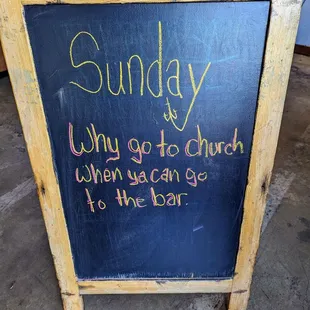 Sunday
Why go to church
when ya can go
to the bar.